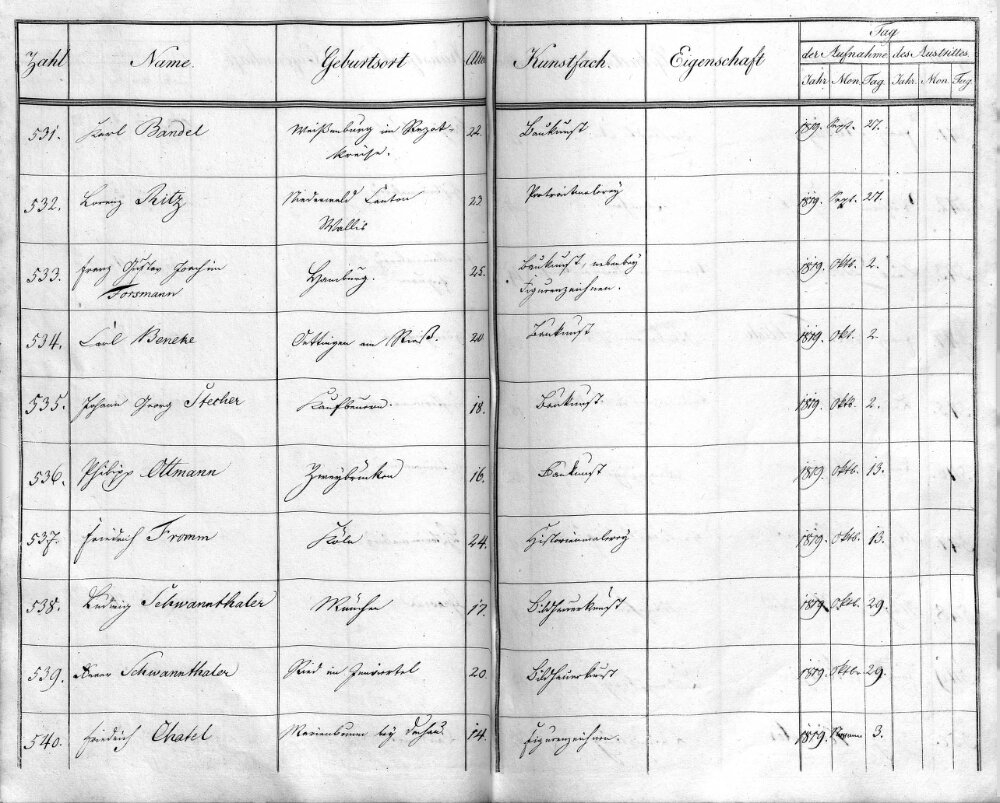 Tag
Zahl Name. Geburtsort Alter Kunstfach. Eigenschaft der Aufnahme des Austrittes.
Jahr Mon. Tag. Jahr. Mon. Tag.
531. Karl Bandel Weißenburg im Rezat- 22. Baukunst 1819. Sept. 27.
kreise.
532. Lorenz Ritz Niederwald Canton 23 Portraitmalerey 1819. Sept. 27.
Wallis
533. Franz Gustav Joachim Hamburg. 25. Baukunst, nebenbey 1819. Oktb. 2.
Forsmann Figurenzeichnen.
534. Carl Beneke Oettingen am Rieß. 20 Baukunst 1819. Okt. 2.
535. Johann Georg Stecher Kaufbeuern. 18. Baukunst. 1819. Oktb. 2.
536. Philipp Ottmann Zweybrüken 16. Baukunst 1819. Oktb. 13.
537. Friedrich Fromm Köln 24. Historienmalerey 1819. Oktb. 13.
538. Ludwig Schwannthaler München 17. Bildhauerkunst 1819. Oktb. 29.
539. Xaver Schwannthaler Ried im Innviertel 20. Bildhauerkunst 1819. Oktbr 29.
540. Friedrich Chatel Marienbrunn bey Dachau. 14. Figurenzeichnen. 1819. 3.